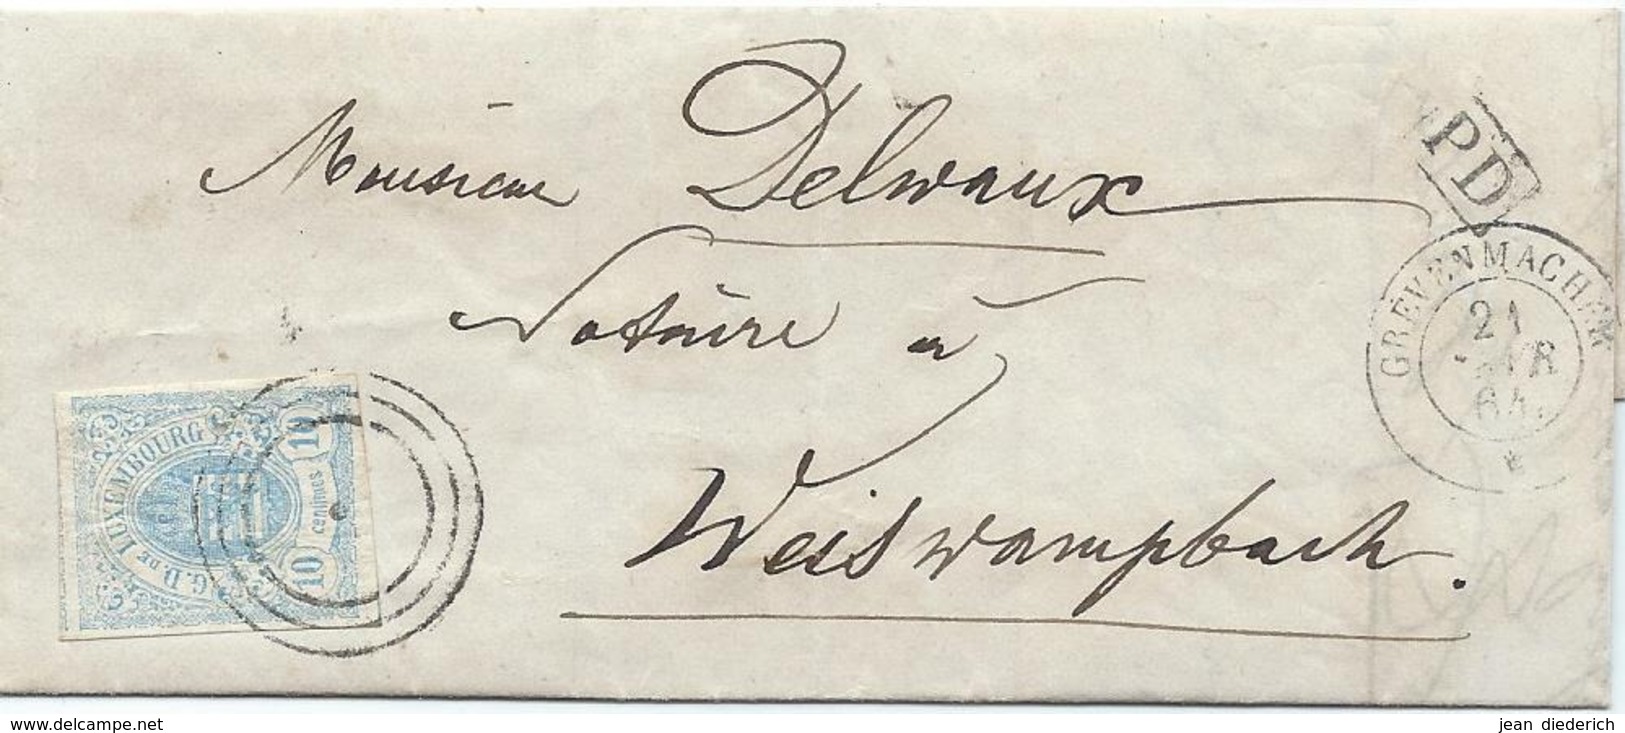 Monsieur Delwaux
Notaire à
Weiswampbach.
PD
GREVENMACHER
21
AVR
64
G. D. DE LUXEMBOURG
10 centimes 10
www.delcampe.net
jean diederich